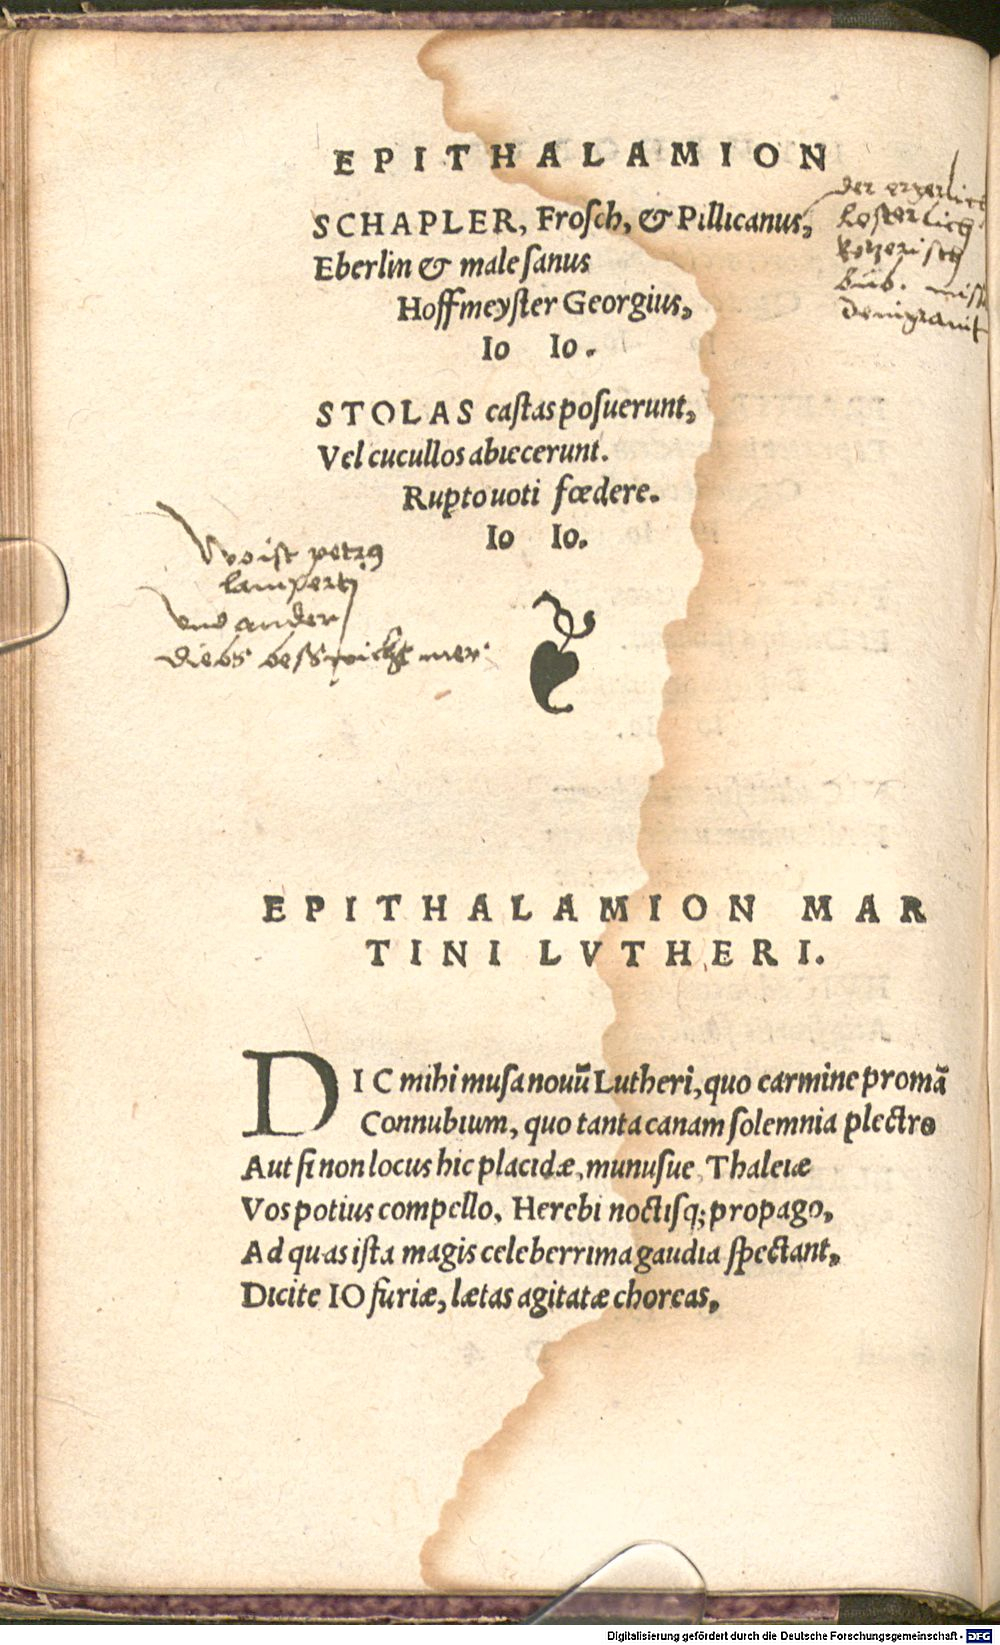 EPITHALAMION
SCHAPLER, Froſch, & Pillicanus,
Eberlin & male ſanus
Hoffmeyſter Georgius,
Io Io.
der ergerlich
loſterlich
ketzeriſch
bub. miſt
denigranit
STOLAS caſtas poſuerunt,
Vel cucullos abiecerunt.
Rupto uoti fœdere.
Io Io.
Wo iſt petrꝰ
lamperti
vnd ander
diebs beſſwicht mer.
EPITHALAMION MAR
TINI LVTHERI.
DIC mihi muſa nouũ Lutheri, quo carmine promã
Connubium, quo tanta canam ſolemnia plectro
Aut ſi non locus hic placidæ, munuſue Thaleiæ
Vos potius compello, Herebi noctiſq; propago,
Ad quas iſta magis celeberrima gaudia ſpectant,
Dicite IO furiæ, lætas agitatæ choreas,
Digitalisierung gefördert durch die Deutsche Forschungsgemeinschaft - DFG